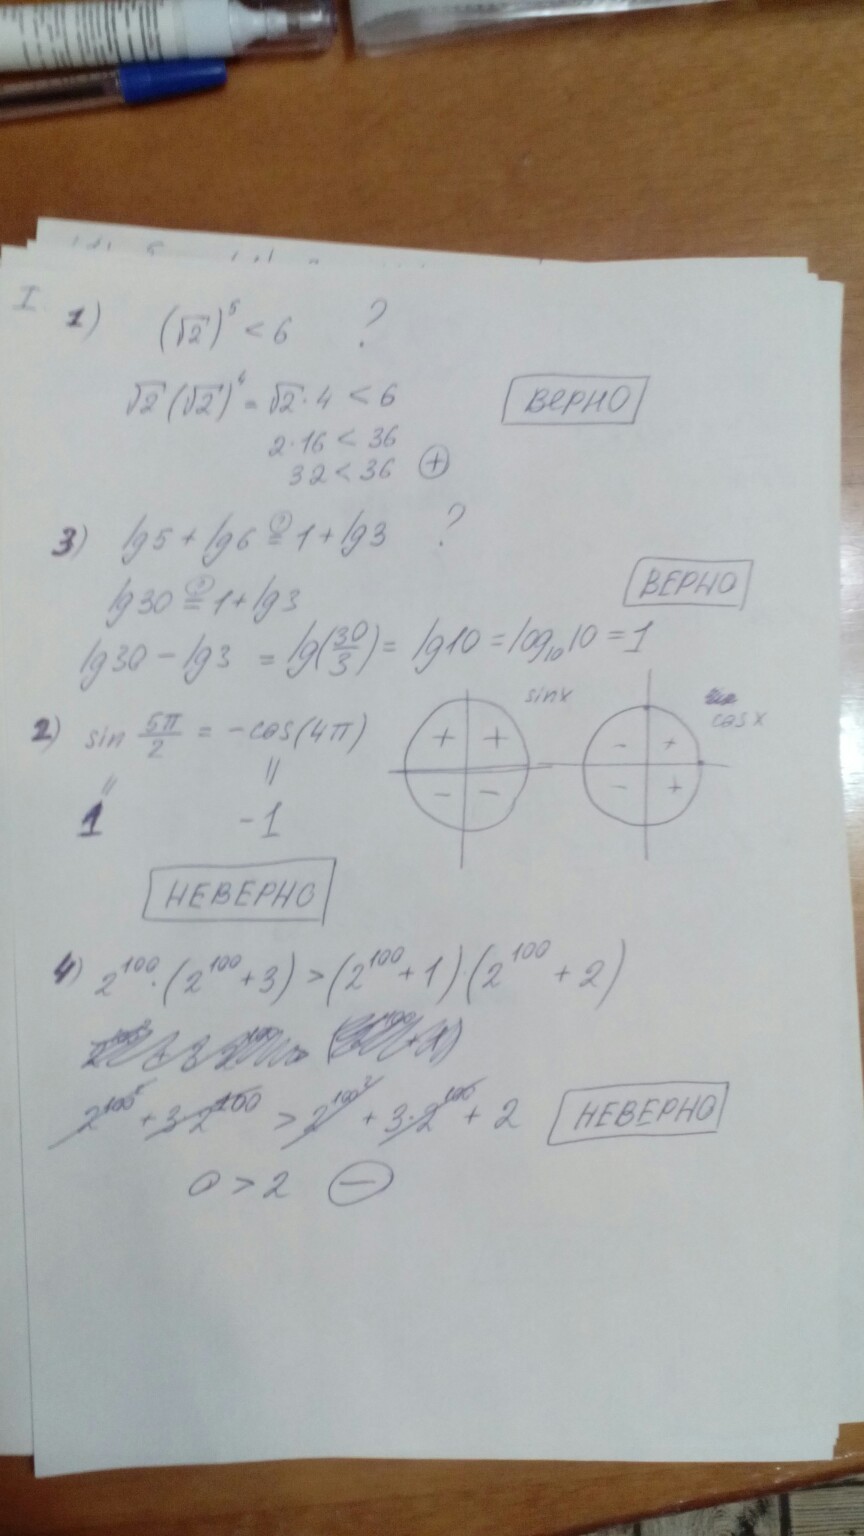 I. 1) (√2)⁵ < 6 ?
√2 (√2)⁴ = √2 · 4 < 6
ВЕРНО
2·16 < 36
32 < 36 ⊕
3) lg5 + lg6 ≟ 1 + lg3 ?
lg30 ≟ 1 + lg3
ВЕРНО
lg30 − lg3 = lg(30/3) = lg10 = log₁₀10 = 1
2) sin 5π/2 = −cos(4π)
sinx
cosx
+ +
− −
− +
− +
" "
1 -1
НЕВЕРНО
4) 2¹⁰⁰·(2¹⁰⁰+3) > (2¹⁰⁰+1)·(2¹⁰⁰+2)
2^100² + 3·2¹⁰⁰ > 2^100² + 3·2¹⁰⁰ + 2
НЕВЕРНО
0 > 2 ⊖